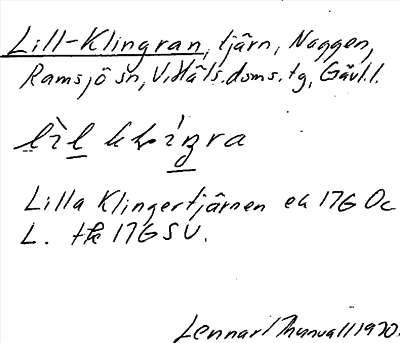 Lill-Klingran, tjärn, Naggen,
Ramsjö sn, Västra Häls. doms. tg, Gävl. l.
Lilla Klingertjärnen ek 17G Oc
L. tk 17G SV.
Lennart Thunvall 1970.